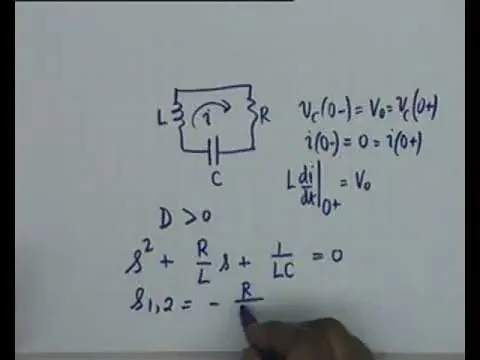 L i R
C
v_c(0-) = V_0 = v_c(0+)
i(0-) = 0 = i(0+)
L di/dt|_0+ = V_0
D > 0
s^2 + R/L s + 1/LC = 0
s_1,2 = - R